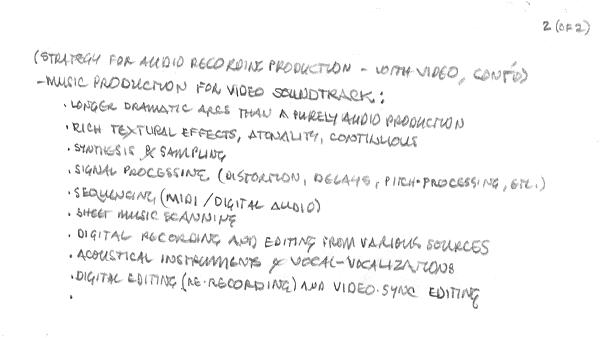 2 (OF 2)
(STRATEGY FOR AUDIO RECORDING PRODUCTION - WITH VIDEO, CONT'D)
- MUSIC PRODUCTION FOR VIDEO SOUNDTRACK:
· LONGER DRAMATIC ARCS THAN A PURELY AUDIO PRODUCTION
· RICH TEXTURAL EFFECTS, ATONALITY, CONTINUOUS
· SYNTHESIS & SAMPLING
· SIGNAL PROCESSING (DISTORTION, DELAYS, PITCH-PROCESSING, ETC.)
· SEQUENCING (MIDI / DIGITAL AUDIO)
· SHEET MUSIC SCANNING
· DIGITAL RECORDING AND EDITING FROM VARIOUS SOURCES
· ACOUSTICAL INSTRUMENTS & VOCAL-VOCALIZATIONS
· DIGITAL EDITING (RE-RECORDING) AND VIDEO-SYNC EDITING
·